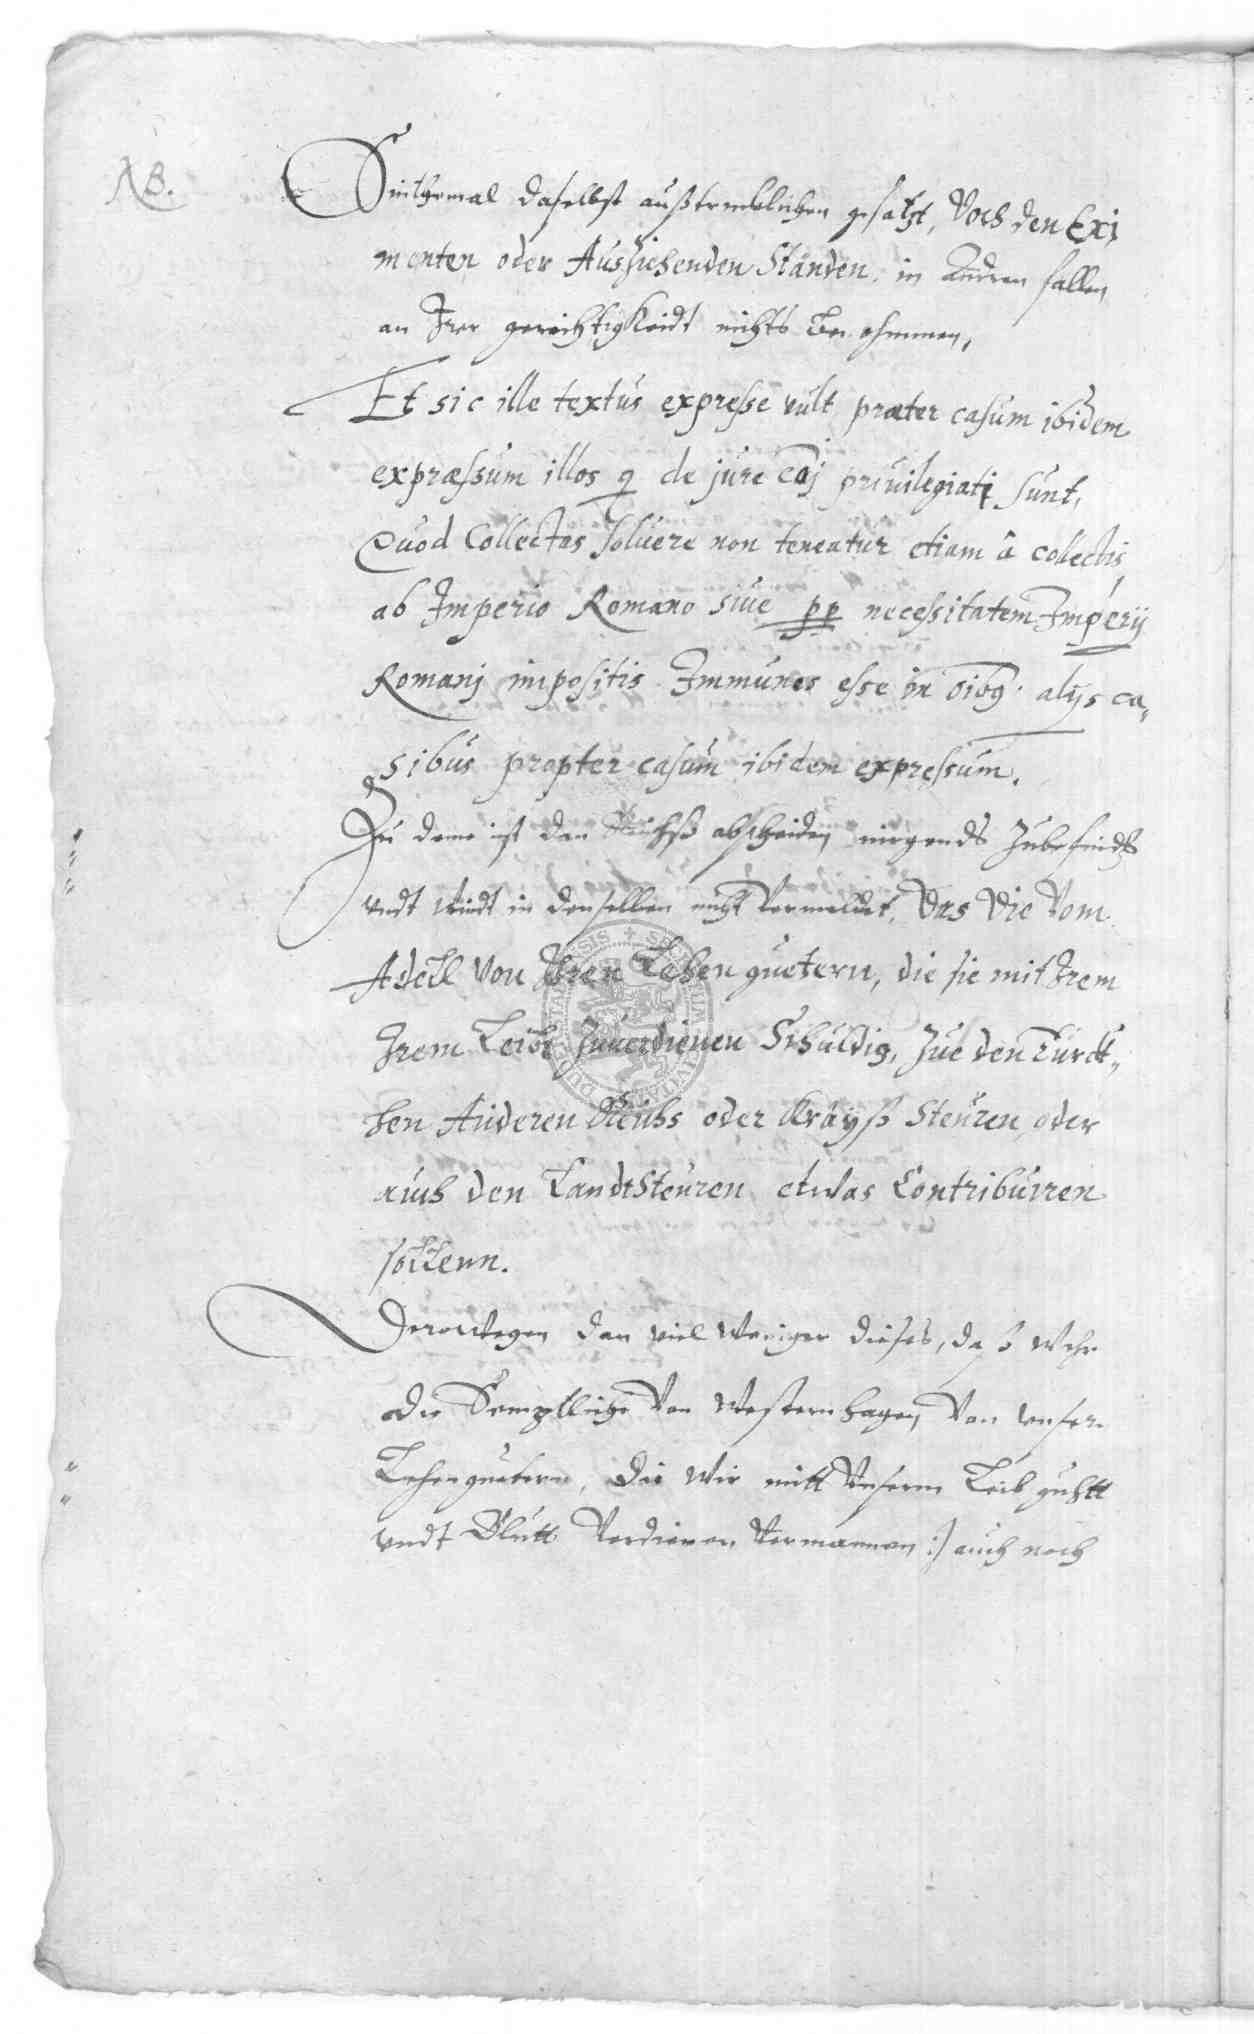 NB.
Sinthemal daselbst außtrucklichen gesatzt, Doch den Exi,
menten oder Ausziehenden Ständen, in Andren fallen
an Irer gerechtigKeidt nichts Benehmmen,
Et sic ille textus expresse vult præter casum ibidem
expræssum illos q de jure coj priuilegiati sunt,
Quod Collectas soluere non teneatur etiam â collectis
ab Imperio Romano siue pp necessitatem Imperij
Romanj impositis Immunes esse in oibq alijs ca„
sibus propter casum ibidem expressum.
Zu deme ist den Reichß abscheiden nirgends Zubefinden
undt wirdt in denselben nicht Vermeldet, Das Die Vom
Adell Von Ihren Lehen guetern, die sie mit Irem
Irem Leibe Zuuerdienen Schuldig, Zue den Türck„
hen Anderen Reichs oder Krayß Steüren, oder
auch den LandtSteuren etwas Contribuirren
sollenn.
Derowegen dan viel Weniger dieses, daß Wihr
die Semptliche Von Westernhagen, Von unsern
Lehenguetern, Die Wir mitt Unserm Leib guhtt
undt Blutt Verdienen Vermannen :/ auch noch